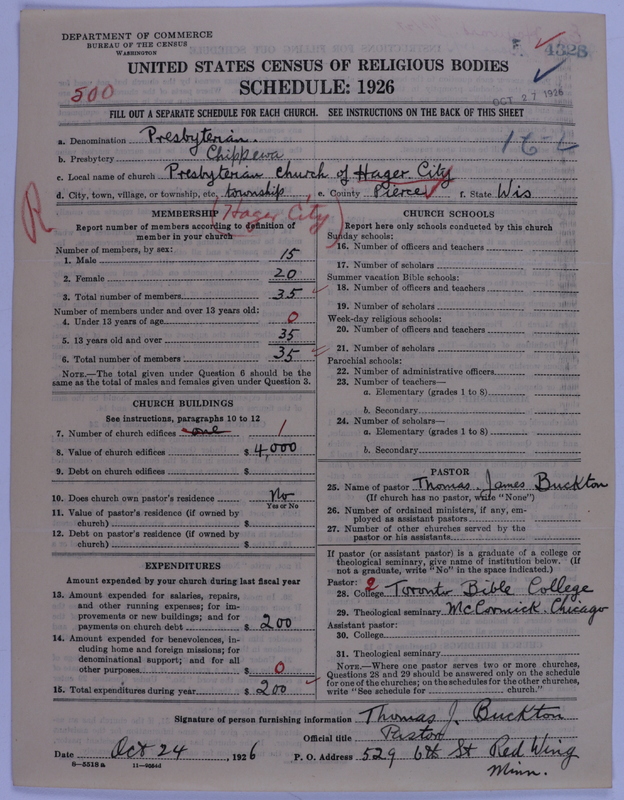 DEPARTMENT OF COMMERCE
BUREAU OF THE CENSUS
WASHINGTON
4328
UNITED STATES CENSUS OF RELIGIOUS BODIES
SCHEDULE: 1926
500
OCT 27 1926
FILL OUT A SEPARATE SCHEDULE FOR EACH CHURCH. SEE INSTRUCTIONS ON THE BACK OF THIS SHEET
a. Denomination Presbyterian.
b. Presbytery Chippewa
c. Local name of church Presbyterian church of Hager City
d. City, town, village, or township, etc. township e. County Pierce f. State Wis
R
(Hager City)
MEMBERSHIP
Report number of members according to definition of
member in your church
Number of members, by sex:
1. Male 15
2. Female 20
3. Total number of members 35
Number of members under and over 13 years old:
4. Under 13 years of age 0
5. 13 years old and over 35
6. Total number of members 35
NOTE.—The total given under Question 6 should be the
same as the total of males and females given under Question 3.
CHURCH BUILDINGS
See instructions, paragraphs 10 to 12
7. Number of church edifices one 1
8. Value of church edifices $ 4,000
9. Debt on church edifices $
10. Does church own pastor's residence No
Yes or No
11. Value of pastor's residence (if owned by
church) $
12. Debt on pastor's residence (if owned by
church) $
EXPENDITURES
Amount expended by your church during last fiscal year
13. Amount expended for salaries, repairs,
and other running expenses; for im-
provements or new buildings; and for
payments on church debt $ 200
14. Amount expended for benevolences, in-
cluding home and foreign missions; for
denominational support; and for all
other purposes $ 0
15. Total expenditures during year $ 200
CHURCH SCHOOLS
Report here only schools conducted by this church
Sunday schools:
16. Number of officers and teachers
17. Number of scholars
Summer vacation Bible schools:
18. Number of officers and teachers
19. Number of scholars
Week-day religious schools:
20. Number of officers and teachers
21. Number of scholars
Parochial schools:
22. Number of administrative officers
23. Number of teachers—
a. Elementary (grades 1 to 8)
b. Secondary
24. Number of scholars—
a. Elementary (grades 1 to 8)
b. Secondary
PASTOR
25. Name of pastor Thomas James Buckton
(If church has no pastor, write "None")
26. Number of ordained ministers, if any, em-
ployed as assistant pastors
27. Number of other churches served by the
pastor or his assistants
If pastor (or assistant pastor) is a graduate of a college or
theological seminary, give name of institution below. (If
not a graduate, write "No" in the space indicated.)
Pastor: 2
28. College Toronto Bible College
29. Theological seminary McCormick, Chicago
Assistant pastor:
30. College
31. Theological seminary
NOTE.—Where one pastor serves two or more churches,
Questions 28 and 29 should be answered only on the schedule
for one of the churches; on the schedules for the other churches,
write "See schedule for church."
Signature of person furnishing information Thomas J. Buckton
Official title Pastor
Date Oct 24, 1926 P. O. Address 529 6th St Red Wing
Minn.
8—5518 a 11—9554d